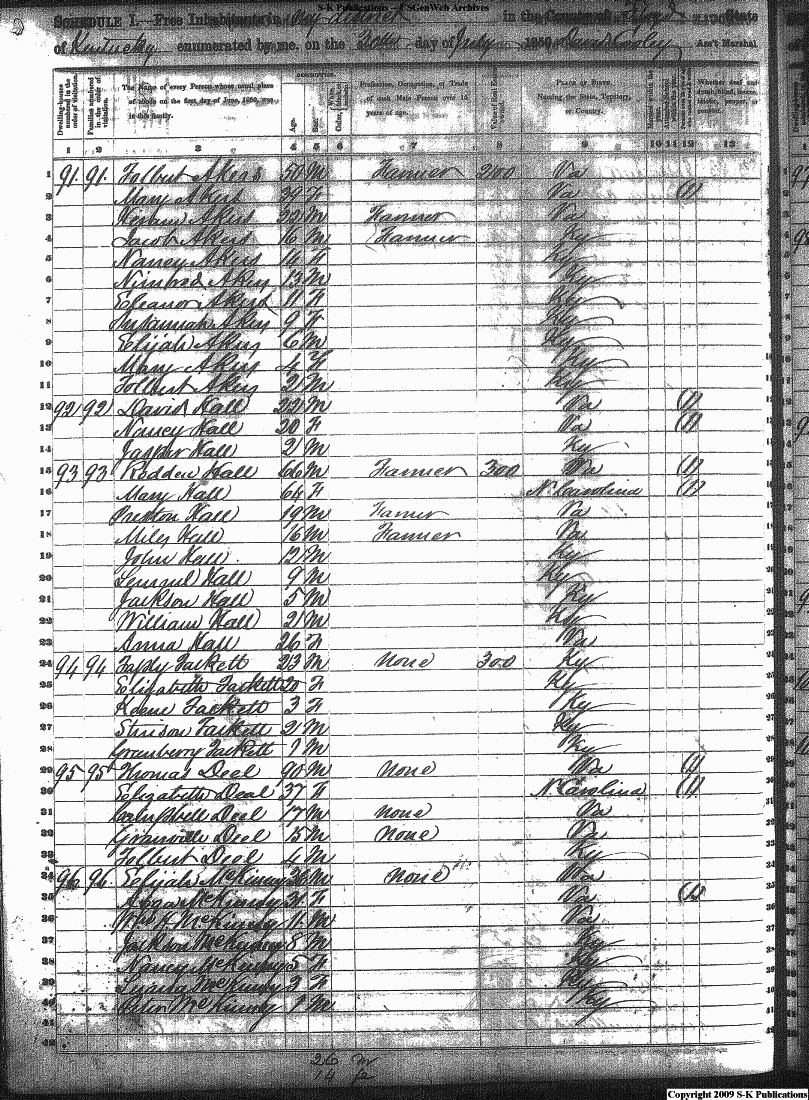 S-K Publications - USGenWeb Archives
SCHEDULE I.—Free Inhabitants in in the County of Floyd State
of Kentucky enumerated by me, on the 30th day of July 1850 Ass't Marshal
DESCRIPTION.
Dwelling-houses numbered in the order of visitation. Families numbered in the order of visitation. The Name of every Person whose usual place of abode on the first day of June, 1850, was in this family. Age. Sex. Color, Profession, Occupation, or Trade of each Male Person over 15 years of age. Value of Real Estate owned. PLACE OF BIRTH. Naming the State, Territory, or Country. Whether deaf and dumb, blind, insane, idiotic, pauper, or convict.
1 2 3 4 5 6 7 8 9 10 11 12 13
1 91 91 Tolbert Akers 50 M Farmer 200 Va
2 Mary Akers 39 F Va (1)
3 Akers 22 M Farmer Va
4 Jacob Akers 16 M Farmer Ky
5 Nancy Akers 14 F Ky
6 Nimrod Akers 13 M Ky
7 Eleanor Akers 11 F Ky
8 Susannah Akers 9 F Ky
9 Elijah Akers 6 M Ky
10 Mary Akers 4 F Ky
11 Tolbert Akers 2 M Ky
12 92 92 David Hall 22 M Va (1)
13 Nancy Hall 20 F Va (1)
14 Jasper Hall 2 M Ky
15 93 93 Redden Hall 66 M Farmer 300 Va (1)
16 Mary Hall 64 F N Carolina (1)
17 Preston Hall 19 M Farmer Va
18 Miles Hall 16 M Farmer Va
19 John Hall 12 M Ky
20 Lemuel Hall 9 M Ky
21 Jackson Hall 5 M Ky
22 William Hall 2 M Ky
23 Anna Hall 26 F Va
24 94 94 Tackett 23 M None 300 Ky
25 Elizabeth Tackett 20 F Ky
26 Tackett 3 F Ky
27 Tackett 2 M Ky
28 Greenberry Tackett 1 M Ky
29 95 95 Thomas Deal 90 M None Va (1)
30 Elizabeth Deal 37 F N Carolina (1)
31 Deal 17 M None Va
32 Granville Deal 15 M None Va
33 Tolbert Deal 4 M Ky
34 96 96 Elijah McKinney 36 M None Va
35 McKinney 31 F Va (1)
36 Wm H McKinney 11 M Va
37 Jackson McKinney 8 M Ky
38 Nancy McKinney 5 F Ky
39 McKinney 3 F Ky
40 Peter McKinney 1 M Ky
41
42
26 m
14 f
Copyright 2009 S-K Publications